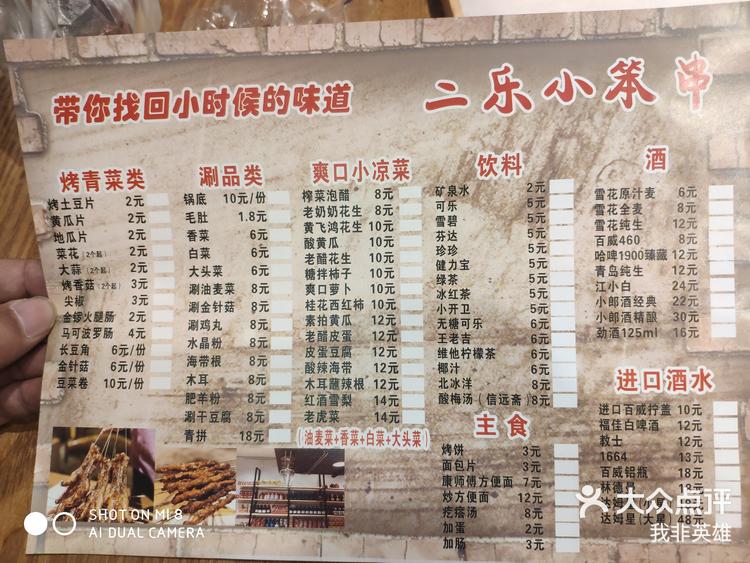 带你找回小时候的味道
二乐小笨串
烤青菜类
烤土豆片 2元
黄瓜片 2元
地瓜片 2元
菜花(2个起) 2元
大蒜(2个起) 2元
烤香菇(2个起) 3元
尖椒 3元
金锣火腿肠 2元
马可波罗肠 4元
长豆角 6元/份
金针菇 6元/份
豆菜卷 10元/份
涮品类
锅底 10元/份
毛肚 1.8元
香菜 6元
白菜 6元
大头菜 6元
涮油麦菜 8元
涮金针菇 8元
涮鸡丸 8元
水晶粉 8元
海带根 8元
木耳 8元
肥羊粉 8元
涮干豆腐 8元
青拼 18元
(油麦菜+香菜+白菜+大头菜)
爽口小凉菜
榨菜泡醋 8元
老奶奶花生 8元
黄飞鸿花生 8元
酸黄瓜 8元
老醋花生 10元
糖拌柿子 10元
爽口萝卜 10元
桂花西红柿 10元
素拍黄瓜 12元
老醋皮蛋 12元
皮蛋豆腐 12元
酸辣海带 12元
木耳蘸辣根 12元
红酒雪梨 14元
老虎菜 14元
饮料
矿泉水 2元
可乐 5元
雪碧 5元
芬达 5元
珍珍 5元
健力宝 5元
绿茶 5元
冰红茶 5元
小开卫 5元
无糖可乐 6元
王老吉 6元
维他柠檬茶 6元
椰汁 6元
北冰洋 8元
酸梅汤(信远斋) 8元
主食
烤饼 3元
面包片 3元
康师傅方便面 7元
炒方便面 12元
疙瘩汤 8元
加蛋 2元
加肠 3元
酒
雪花原汁麦 6元
雪花全麦 8元
雪花纯生 12元
百威460 8元
哈啤1900臻藏 12元
青岛纯生 12元
江小白 24元
小郎酒经典 22元
小郎酒精酿 30元
劲酒125ml 16元
进口酒水
进口百威拧盖 10元
福佳白啤酒 12元
教士 12元
1664 13元
百威铝瓶 18元
林德曼
达姆星(大) 48元
SHOT ON MI 8
AI DUAL CAMERA
大众点评
我非英雄